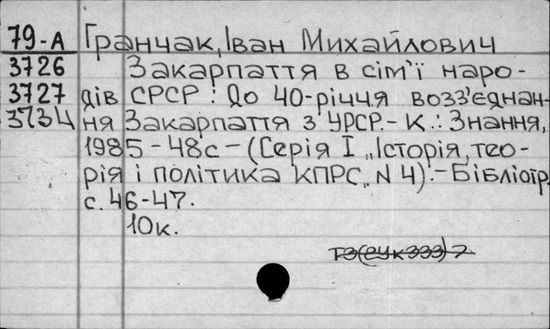 79-А Гранчак, Іван Михайлович
3726 Закарпаття в сім'ї наро-
3727 дів СРСР: До 40-річчя возз'єднан-
3734 ня Закарпаття з УРСР.-К.: Знання,
1985-48с-(Серія І „Історія, тео-
рія і політика КПРС„ N 4).-Бібліогр.
с. 46-47.
10к.